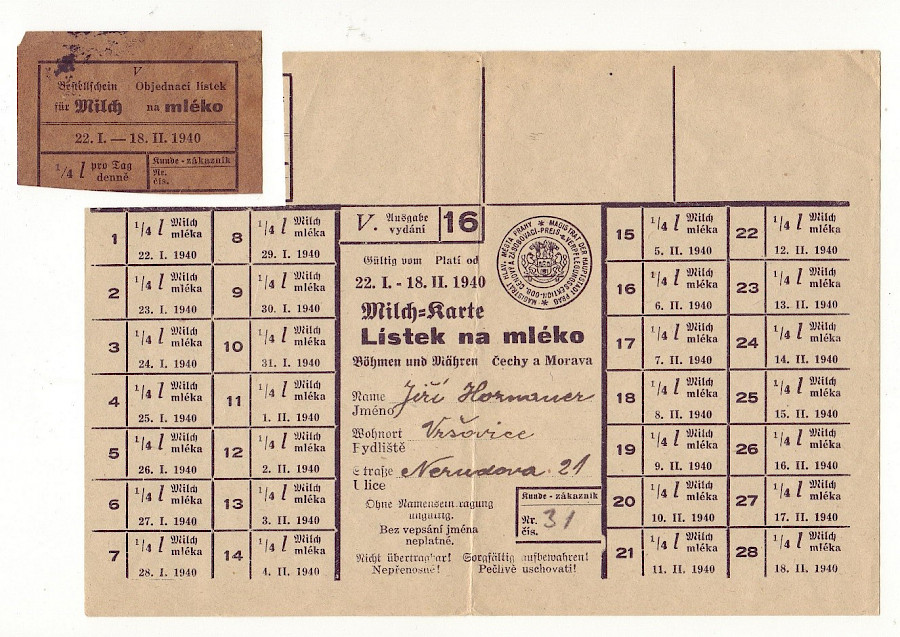 V
Bestellschein Objednací lístek
für Milch na mléko
22. I. — 18. II. 1940
1/4 l pro Tag
denně
Kunde - zákazník
Nr.
čís.
1 1/4 l Milch mléka 22. I. 1940
2 1/4 l Milch mléka 23. I. 1940
3 1/4 l Milch mléka 24. I. 1940
4 1/4 l Milch mléka 25. I. 1940
5 1/4 l Milch mléka 26. I. 1940
6 1/4 l Milch mléka 27. I. 1940
7 1/4 l Milch mléka 28. I. 1940
8 1/4 l Milch mléka 29. I. 1940
9 1/4 l Milch mléka 30. I. 1940
10 1/4 l Milch mléka 31. I. 1940
11 1/4 l Milch mléka 1. II. 1940
12 1/4 l Milch mléka 2. II. 1940
13 1/4 l Milch mléka 3. II. 1940
14 1/4 l Milch mléka 4. II. 1940
V. Ausgabe vydání 16
Gültig vom Platí od
22. I. - 18. II. 1940
Milch=Karte
Lístek na mléko
Böhmen und Mähren Čechy a Morava
Name Jiří Hormauer
Jméno
Wohnort Vršovice
Bydliště
Straße Nerudova 21
Ulice
Ohne Namenseintragung
ungültig.
Bez vepsání jména
neplatné.
Kunde - zákazník
Nr. 31
čís.
Nicht übertragbar! Sorgfältig aufbewahren!
Nepřenosné! Pečlivě uschovati!
MAGISTRAT DER HAUPTSTADT PRAG
15 1/4 l Milch mléka 5. II. 1940
16 1/4 l Milch mléka 6. II. 1940
17 1/4 l Milch mléka 7. II. 1940
18 1/4 l Milch mléka 8. II. 1940
19 1/4 l Milch mléka 9. II. 1940
20 1/4 l Milch mléka 10. II. 1940
21 1/4 l Milch mléka 11. II. 1940
22 1/4 l Milch mléka 12. II. 1940
23 1/4 l Milch mléka 13. II. 1940
24 1/4 l Milch mléka 14. II. 1940
25 1/4 l Milch mléka 15. II. 1940
26 1/4 l Milch mléka 16. II. 1940
27 1/4 l Milch mléka 17. II. 1940
28 1/4 l Milch mléka 18. II. 1940